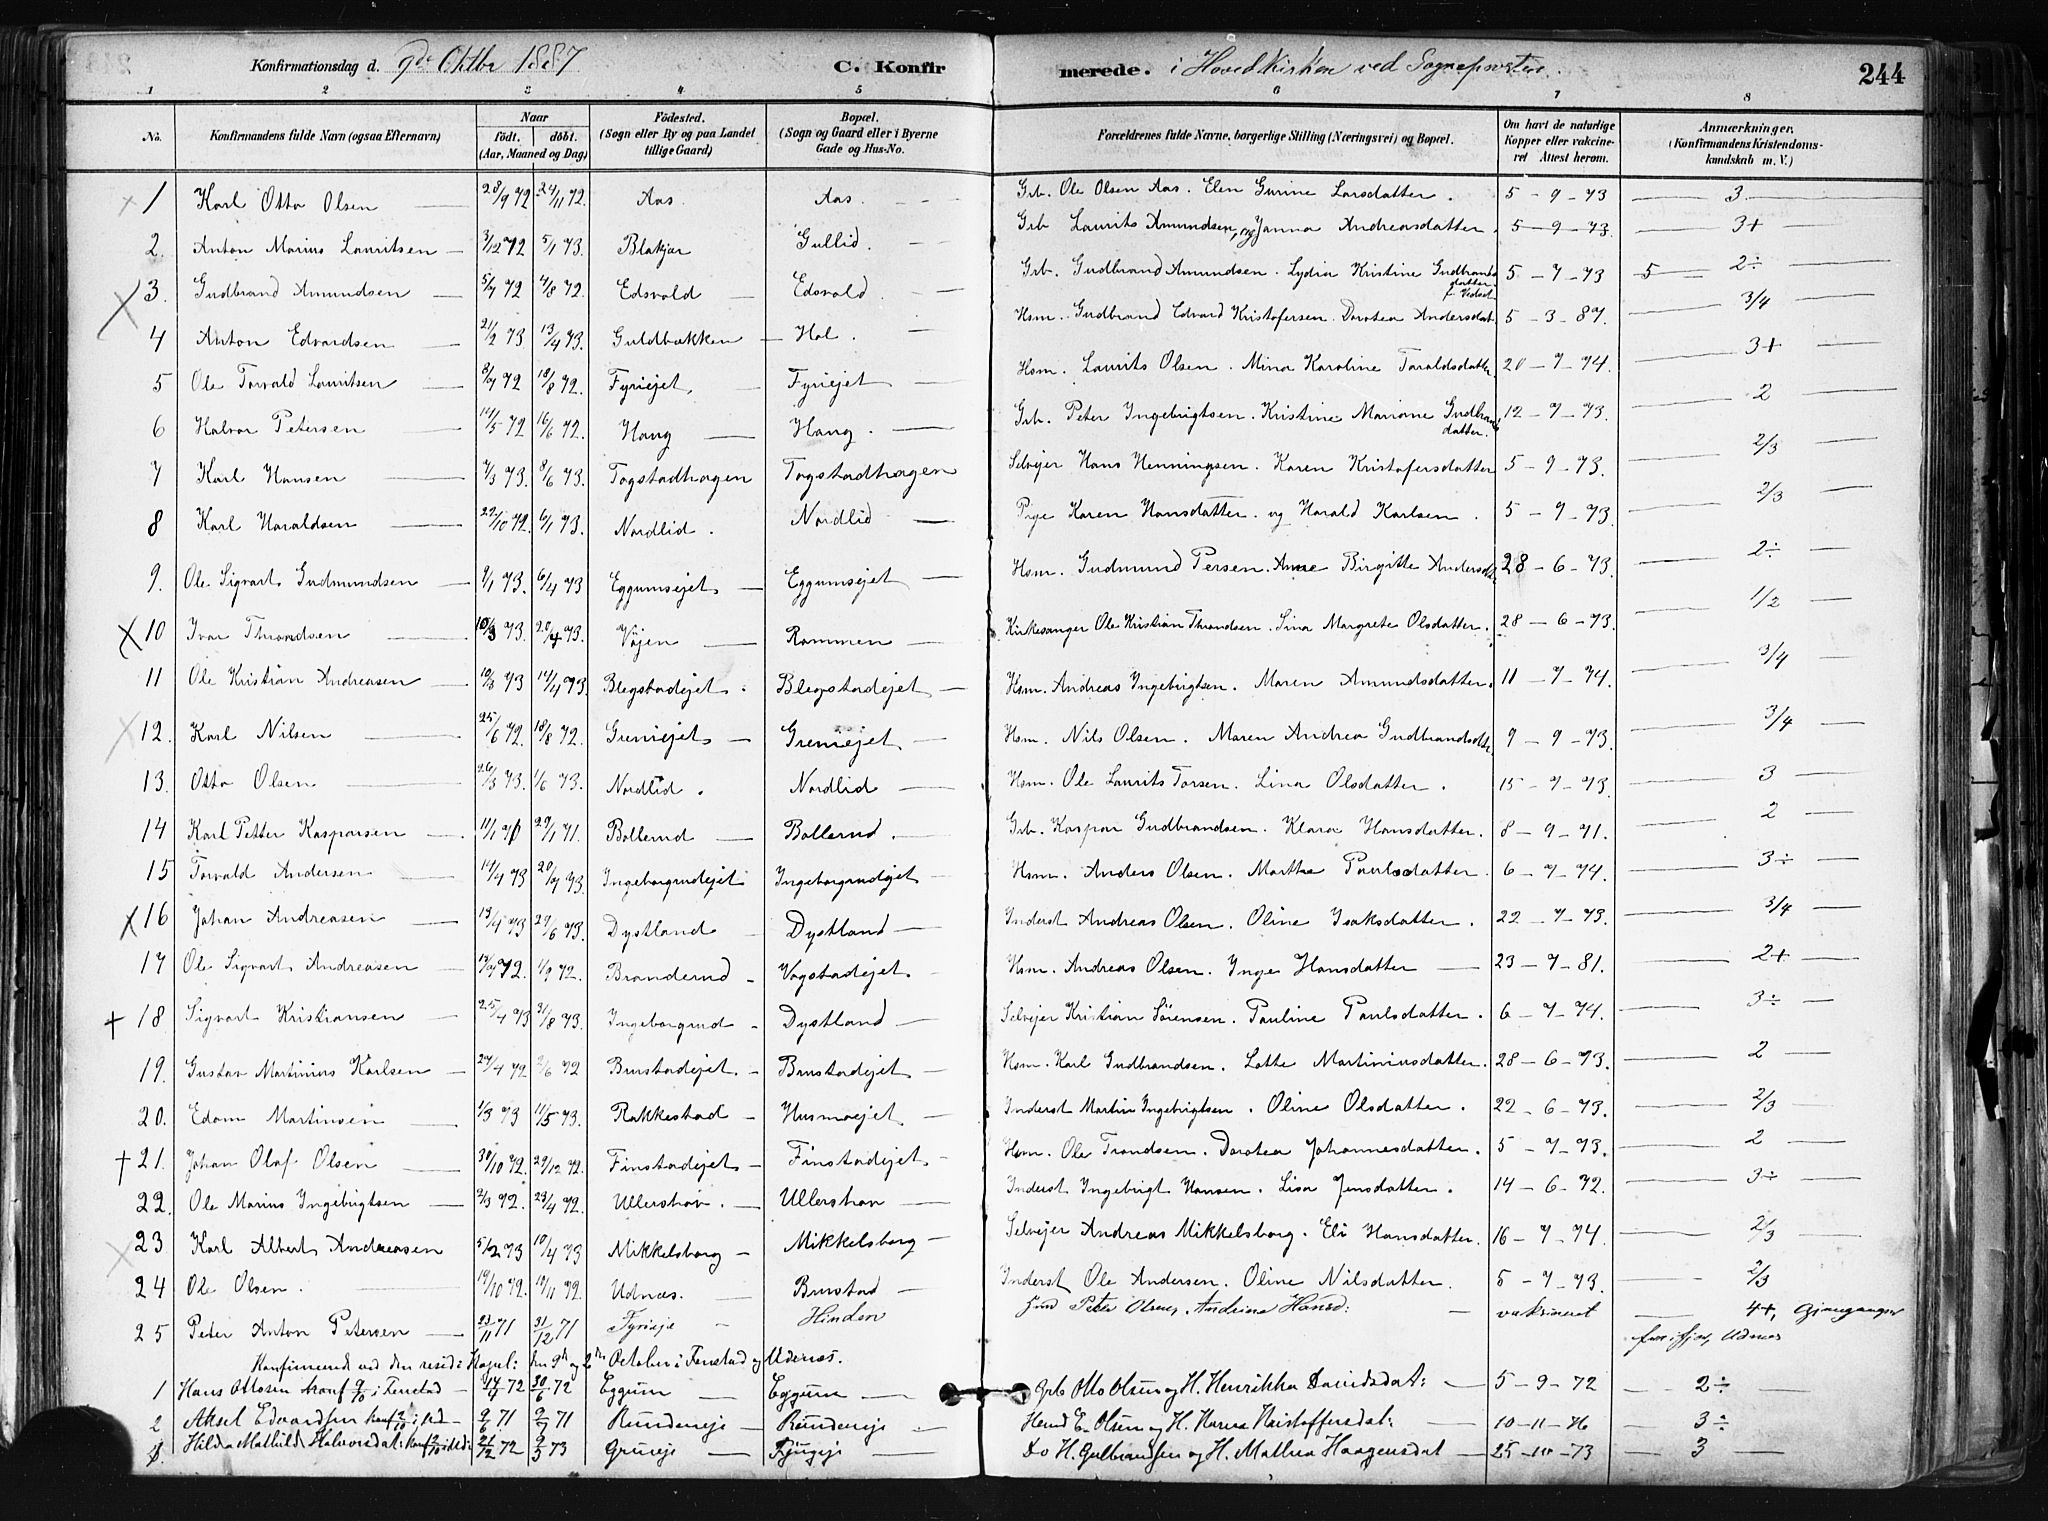 Konfirmationsdag d. 9de Oktbr 1887 C. Konfirmerede. i Hovedkirken ved Sognepresten. 244
1 2 3 4 5 6 7 8
No. Konfirmandens fulde Navn (ogsaa Efternavn) Naar født. døbt. (Aar, Maaned og Dag) Fødested. (Sogn eller By og paa Landet tillige Gaard) Bopæl. (Sogn og Gaard eller i Byerne Gade og Hus-No. Forældrenes fulde Navne, borgerlige Stilling (Næringsvei) og Bopæl. Om havt de naturlige Kopper eller vakcineret Attest herom. Anmærkninger. (Konfirmandens Kristendomskundskab m. V.)
1 Karl Otto Olsen 28/9 72 24/11 72. Aas. Aas. Grb. Ole Olsen Aas. Elen Gurine Larsdatter. 5-9-73 3
2. Anton Marius Lauritsen 3/12 72 5/1 73. Blakjar Gullid. Grb Laurits Amundsen, og Janna Andreasdatter. 5-9-73. 3+
3. Gudbrand Amundsen 5/7 72 4/8 72. Edsvold Edsvold. Grb. Gudbrand Amundsen. Lydia Kristine Gudbrandsdatter. 5-7-73 5 2÷
4 Anton Edvardsen 21/2 73 13/4 73. Guldbakken Hol. Hsm. Gudbrand Edvard Kristofersen. Dorotea Andersdat. 5-3-87. 3/4
5 Ole Torvald Lauritsen 8/7 72 18/8 72. Fyriejet Fyriejet Hsm. Laurits Olsen. Mina Karoline Toraldsdatter. 20-7-74. 3+
6 Halvor Petersen 14/5 72 16/6 72. Haug Haug. Grb. Peter Ingebrigtsen. Kristine Mariane Gudbrandsdatter. 12-7-73. 2
7 Karl Hansen 7/3 73. 8/6 73. Togstadhagen Togstadhagen Selvejer Hans Henningsen. Karen Kristofersdatter 5-9-73. 2/3
8 Karl Haraldsen 27/10 72. 6/1 73. Nordlid. Nordlid Pige Karen Hansdatter og Harald Karlsen. 5-9-73. 2/3
9. Ole Sigvart Gudmundsen 9/1 73. 6/4 73 Eggumsejet Eggumsejet Hsm. Gudmund Persen. Anne Birgitte Andersdtr 28-6-73. 2÷
10 Ivar Throndsen 10/3 73. 20/4 73. Vøjen Rammen Kirkesanger Ole Kristian Throndsen. Lina Margrete Olsdatter. 28-6-73. 1/2
11 Ole Kristian Andreasen 10/3 73 14/4 73. Blegstadejet. Blegstadejet Hsm. Andreas Ingebrigtsen. Maren Amundsdatter. 11-7-74. 3/4
12. Karl Nilsen 25/6 72. 18/8 72. Greniejet Greniejet Hsm. Nils Olsen. Maren Andrea Gudbrandsdtr. 9-9-73. 3/4
13. Otto Olsen 26/3 73. 1/6 73. Nordlid. Nordlid Hsm. Ole Laurits Torsen. Lina Olsdatter. 15-7-73. 3
14 Karl Petter Kasparsen 11/1 71 29/1 71. Bollerud Bollerud. Grb. Kaspar Gudbrandsen. Klara Hansdatter. 8-9-71. 2
15 Torvald Andersen 14/4 73 20/7 73. Ingeborgrudejet Ingeborgrudejet Hsm. Anders Olsen. Marthe Paulsdatter. 6-7-74. 3÷
16 Johan Andreasen 13/4 73 29/6 73. Dystland Dystland Inderst Andreas Olsen. Oline Isaksdatter. 22-7-73. 3/4
17 Ole Sigvart Andreasen 72. 1/9 72. Branderud Vogstadejet. Hsm. Andreas Olsen. Inge Hansdatter 23-7-81. 2+
18 Sigvart Kristiansen 25/4 73 31/8 73. Ingeborgrud Dystland Selvejer Kristian Sørensen. Pauline Paulsdatter. 6-7-74. 3÷
19. Gustav Martinius Karlsen 27/4 72 2/6 72 Brustadejet. Brustadejet Hsm. Karl Gudbrandsen. Lotte Martiniusdatter. 28-6-73. 2
20. Edam Martinsen 1/3 73 11/5 73. Rakkestad Husmoejet Inderst Martin Ingebrigtsen. Oline Olsdatter. 22-6-73. 2/3
21. Johan Olaf Olsen 30/10 72. 29/12 72. Finstadejet Finstadejet Hsm. Ole Trondsen. Dorotea Johannesdatter. 5-7-73. 2
22. Ole Marius Ingebrigtsen 2/3 72. 23/4 72. Ullershov. Ullershov Inderst Ingebrigt Hansen. Lisa Jensdatter. 14-6-72. 3÷
23 Karl Albert Andreasen 5/2 73 10/4 73 Mikkelsborg Mikkelsborg Selvejer Andreas Mikkelsborg. Eli Hansdatter. 16-7-74. 2/3
24 Ole Olsen. 19/10 72. 10/11 72. Udnæs. Brustad Inderst Ole Andersen. Oline Nilsdatter. 5-7-73. 2/3
25 Peter Anton Petersen 23/11 71 31/12 71 Fyrieje Hinden Peter Olsen, Andrine Hansd: vaksineret 4+, Gjenganger
fra ifjor, Udnæs
Konfirmered ved den resid: Kapel: den 9de og 2den October i Fenstad og Udenæs.
1 Hans Ottosen konf 9/10 i Fenstad 14/7 72 30/6 72 Eggum Eggum Grb Otto Olsen og H. Henrikka Davidsdat: 5-9-72 2÷
2 Aksel Edvardsen konf 2/10 i Ud 9/6 71 9/7 71 Rundereje Rundereje Hsmd E. Olsen og H. Karen Kristoffersdat: 10-11-76 3÷
1. Hilda Mathild Halvorsdat: konf 2/10 i Ud: 21/12 72 9/3 73 Grueje Do H. Gulbrandsen og H. Mathea Haagensdat 25-10-73 3